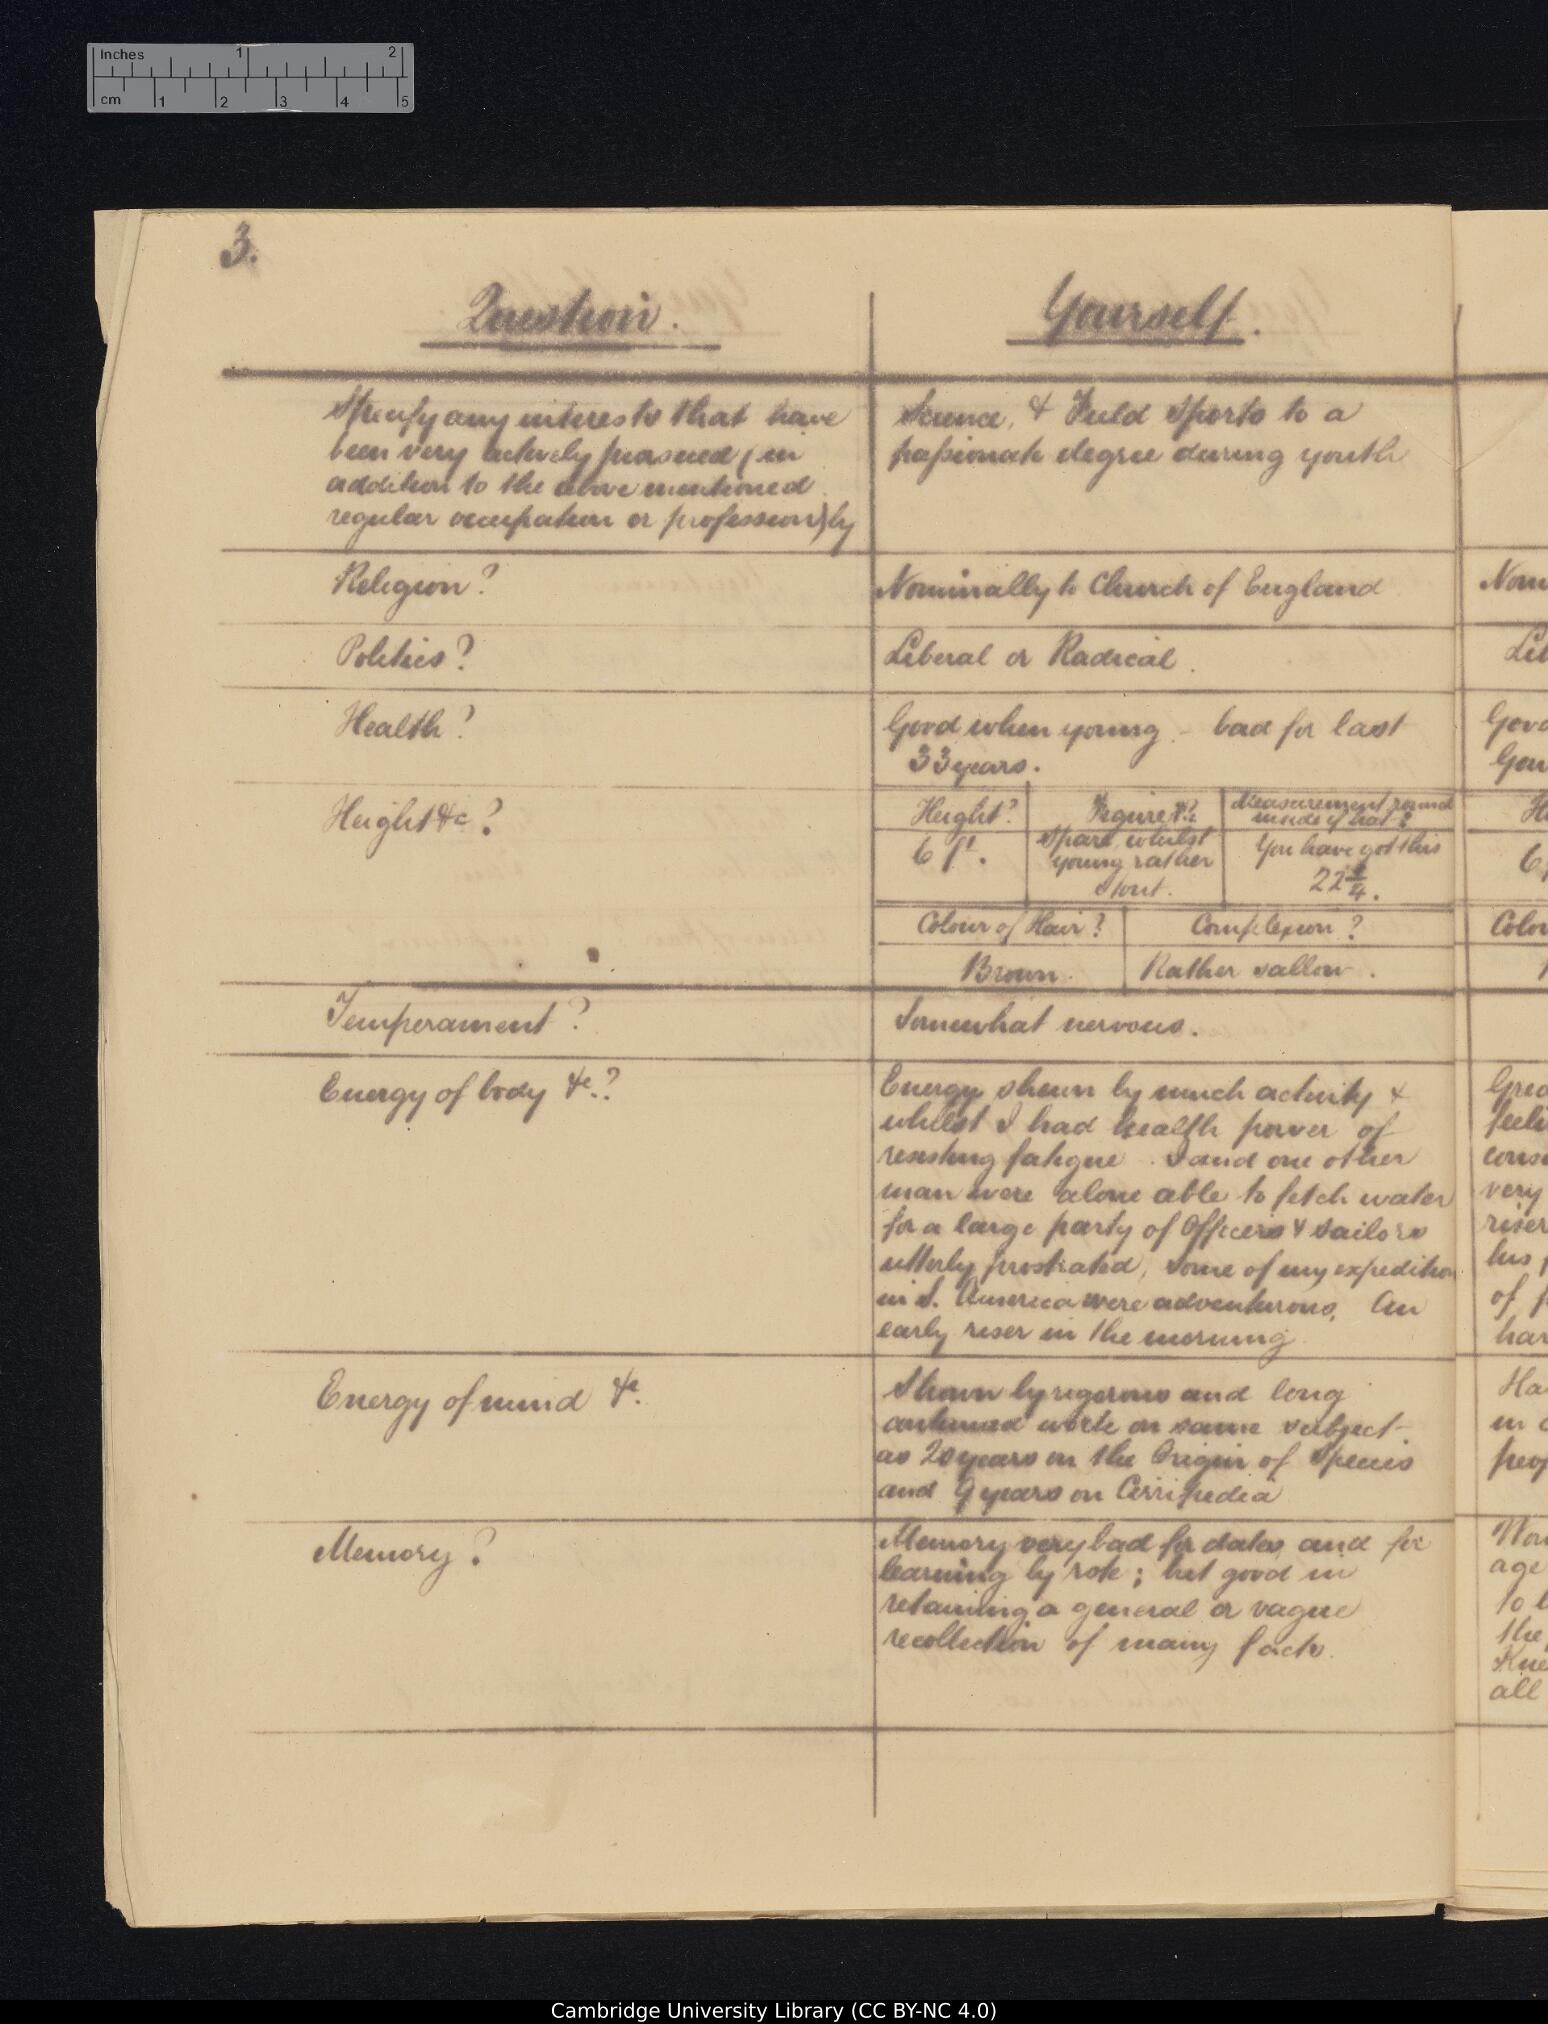 Inches 1 2
cm 1 2 3 4 5
3.
Question.
Yourself.
Specify any interests that have
been very actively pursued (in
addition to the above mentioned
regular occupation or profession) by
Science, & Field Sports to a
passionate degree during youth
Religion?
Nominally to Church of England
Nom
Politics?
Liberal or Radical.
Lib
Health?
Good when young - bad for last
33 years.
Good
Height &c?
Height?
Figure &c?
Measurement round
inside of hat?
6 ft.
Spare whilst
young rather
stout.
You have got this
22 1/4.
Colour of Hair?
Complexion?
Colou
Brown.
Rather sallow.
Temperament?
Somewhat nervous.
Energy of body &c?
Energy shewn by much activity &
whilst I had health power of
resisting fatigue. I and one other
man were alone able to fetch water
for a large party of Officers & sailors
utterly prostrated, some of my expedition
in S. America were adventurous. An
early riser in the morning
Grea
feeli
cons
very
riser
his
of f
har
Energy of mind &c.
Shown by rigorous and long
continued work on same subject
as 20 years on the Origin of Species
and 9 years on Cirripedia
Ha
in
peop
Memory?
Memory very bad for dates, and for
learning by rote; but good in
retaining a general or vague
recollection of many facts.
age
to
the
Kne
all
Cambridge University Library (CC BY-NC 4.0)